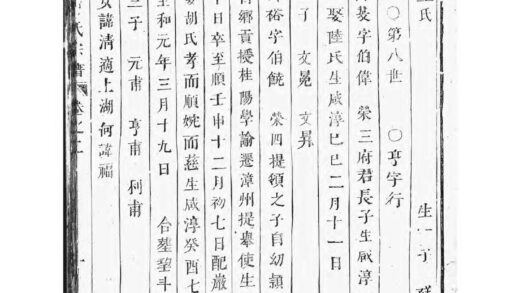 氏 生一子
○第八世 ○亨字行
字伯偉 榮三府君長子生咸淳
娶陸氏生咸淳己巳二月十一日
子 文晃 文昇
裕字伯饒 榮四提領之子自幼穎
鄉貢授桂陽學諭遷漳州提舉使生
十日卒至順壬申十二月初七日配嚴
胡氏孝而順婉而慈生咸淳癸酉七
至和元年三月十九日 合塟墅斗
三子 元甫 亨甫 利甫
女諱清適上湖何諱福
氏宗譜 卷之二 一